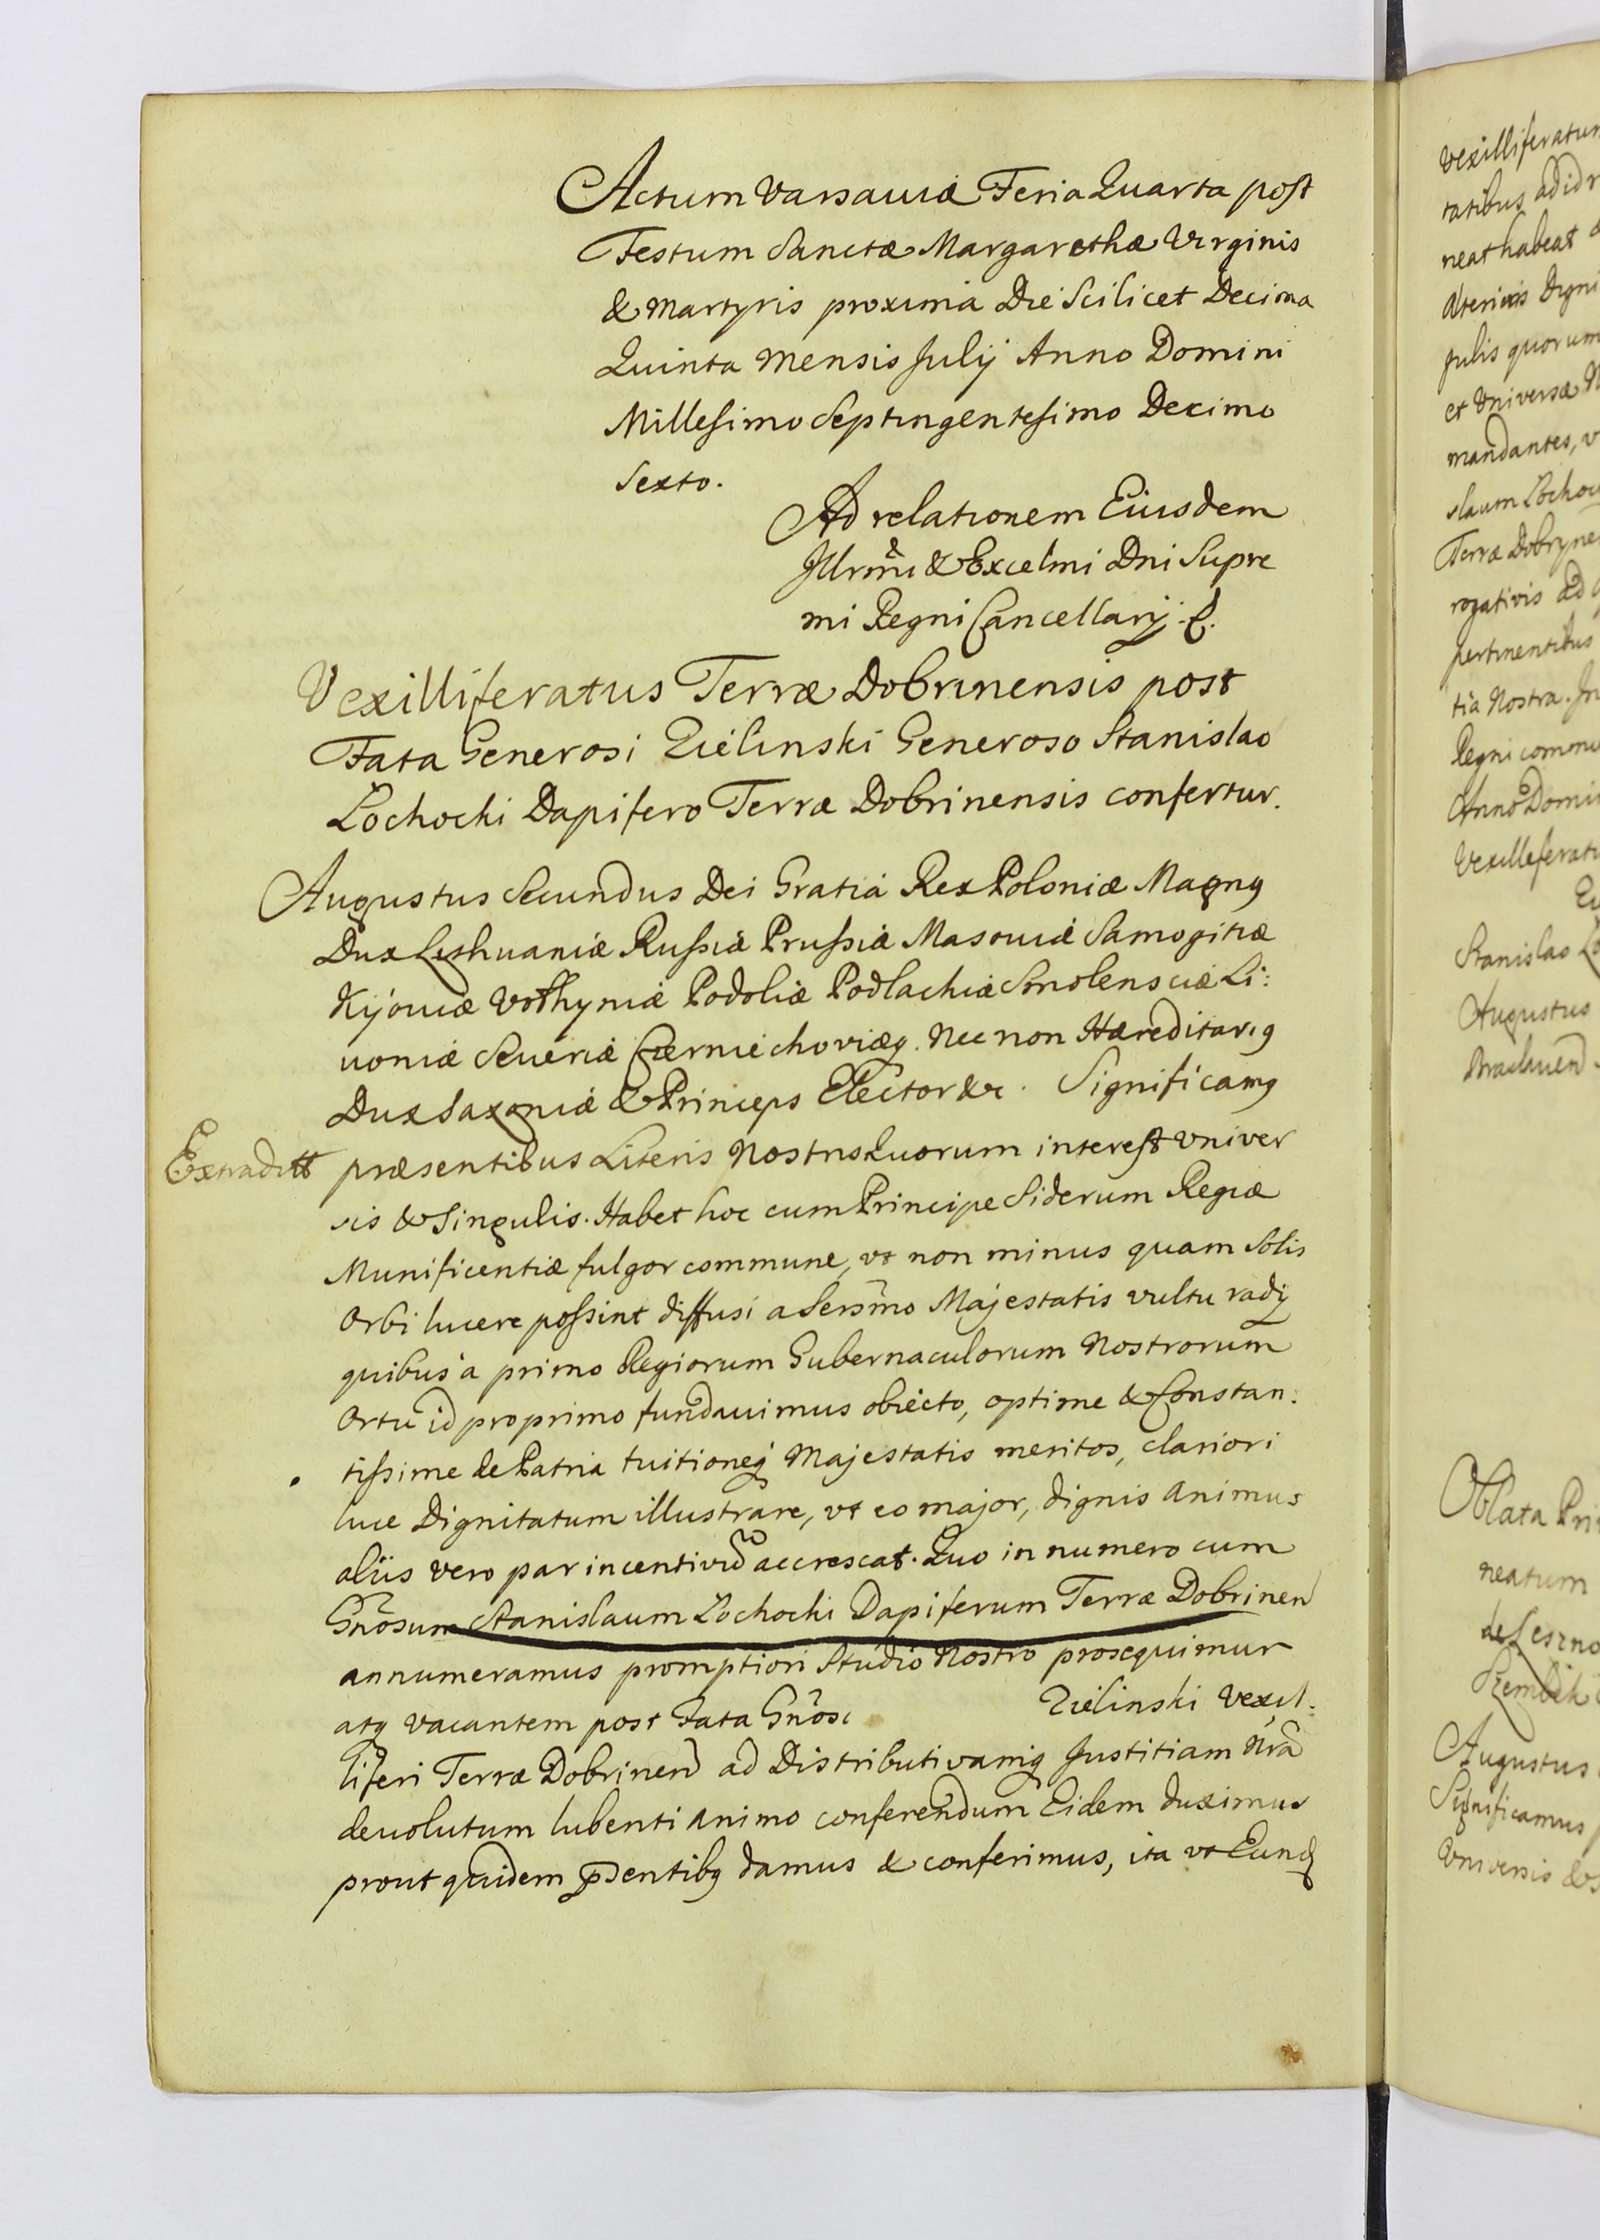 Actum Varsaviæ Feria Quarta post
Festum Sanctæ Margarethæ Virginis
& Martyris proximâ Die Scilicet Decima
Quinta Mensis Julÿ Anno Domini
Millesimo Septingentesimo Decimo
Sexto.
Ad relationem Eiusdem
Jllrm̃i & Excelmi Dni Supre
mi Regni Cancellarÿ.
Vexilliferatus Terræ Dobrinensis post
Fata Generosi Zielinski Generoso Stanislao
Łochocki Dapifero Terræ Dobrinensis confertur.
Augustus Secundus Dei Gratiâ Rex Poloniæ Magnꝰ
Dux Lithuaniæ Russiæ Prussiæ Masoviæ Samogitiæ
Kijoviæ Volhyniæ Podoliæ Podlachiæ Smolensciæ Li:
voniæ Severiæ Czerniechoviæq. Nec non Hæreditariꝰ
Dux Saxoniæ & Princeps Elector &c. Significamꝰ
Extraditt
præsentibus Literis Nostris Quorum interest Univer
sis & Singulis. Habet hoc cum Principe Siderum Regiæ
Munificentiæ fulgor commune, vt non minus quam Solis
Orbi lucere possint diffusi a Serm̃o Majestatis vultu radÿ
quibus a primo Regiorum Gubernaculorum Nostrorum
Ortu id pro primo fundavimus obiecto, optime & Constan:
tissime de Patria tuitioneq Majestatis meritos, clariori
luce Dignitatum illustrare, vt eo major, dignis animus
aliis vero par incentivũ accrescat. Quo in numero cum
Gñosum Stanislaum Łochocki Dapiferum Terræ Dobrinen
annumeramus promptiori Studio Nostro prosequimur
atq vacantem post Fata Gñosi Zielinski Vexil:
liferi Terræ Dobrinen ad Distributivamq Justitiam Nrã
devolutum lubenti animo conferendum Eidem duximus
prout quidem pñsentibꝰ damus & conferimus, ita vt Eund
vexilliferatum
tatibus ad id
neat habeat
Alterius Digni
quorum
et Universæ
mandantes,
slaum Łochoc
Terræ Dobryne
rogativis ad
pertinentibus
tia Nostra. In
Regni commu
Anno Domi
Vexilliferatu
Stanislao Ło
Augustus
Braclavien
Oblata Pri
neatum
Szembek
Augustus
Significamus
Universis &